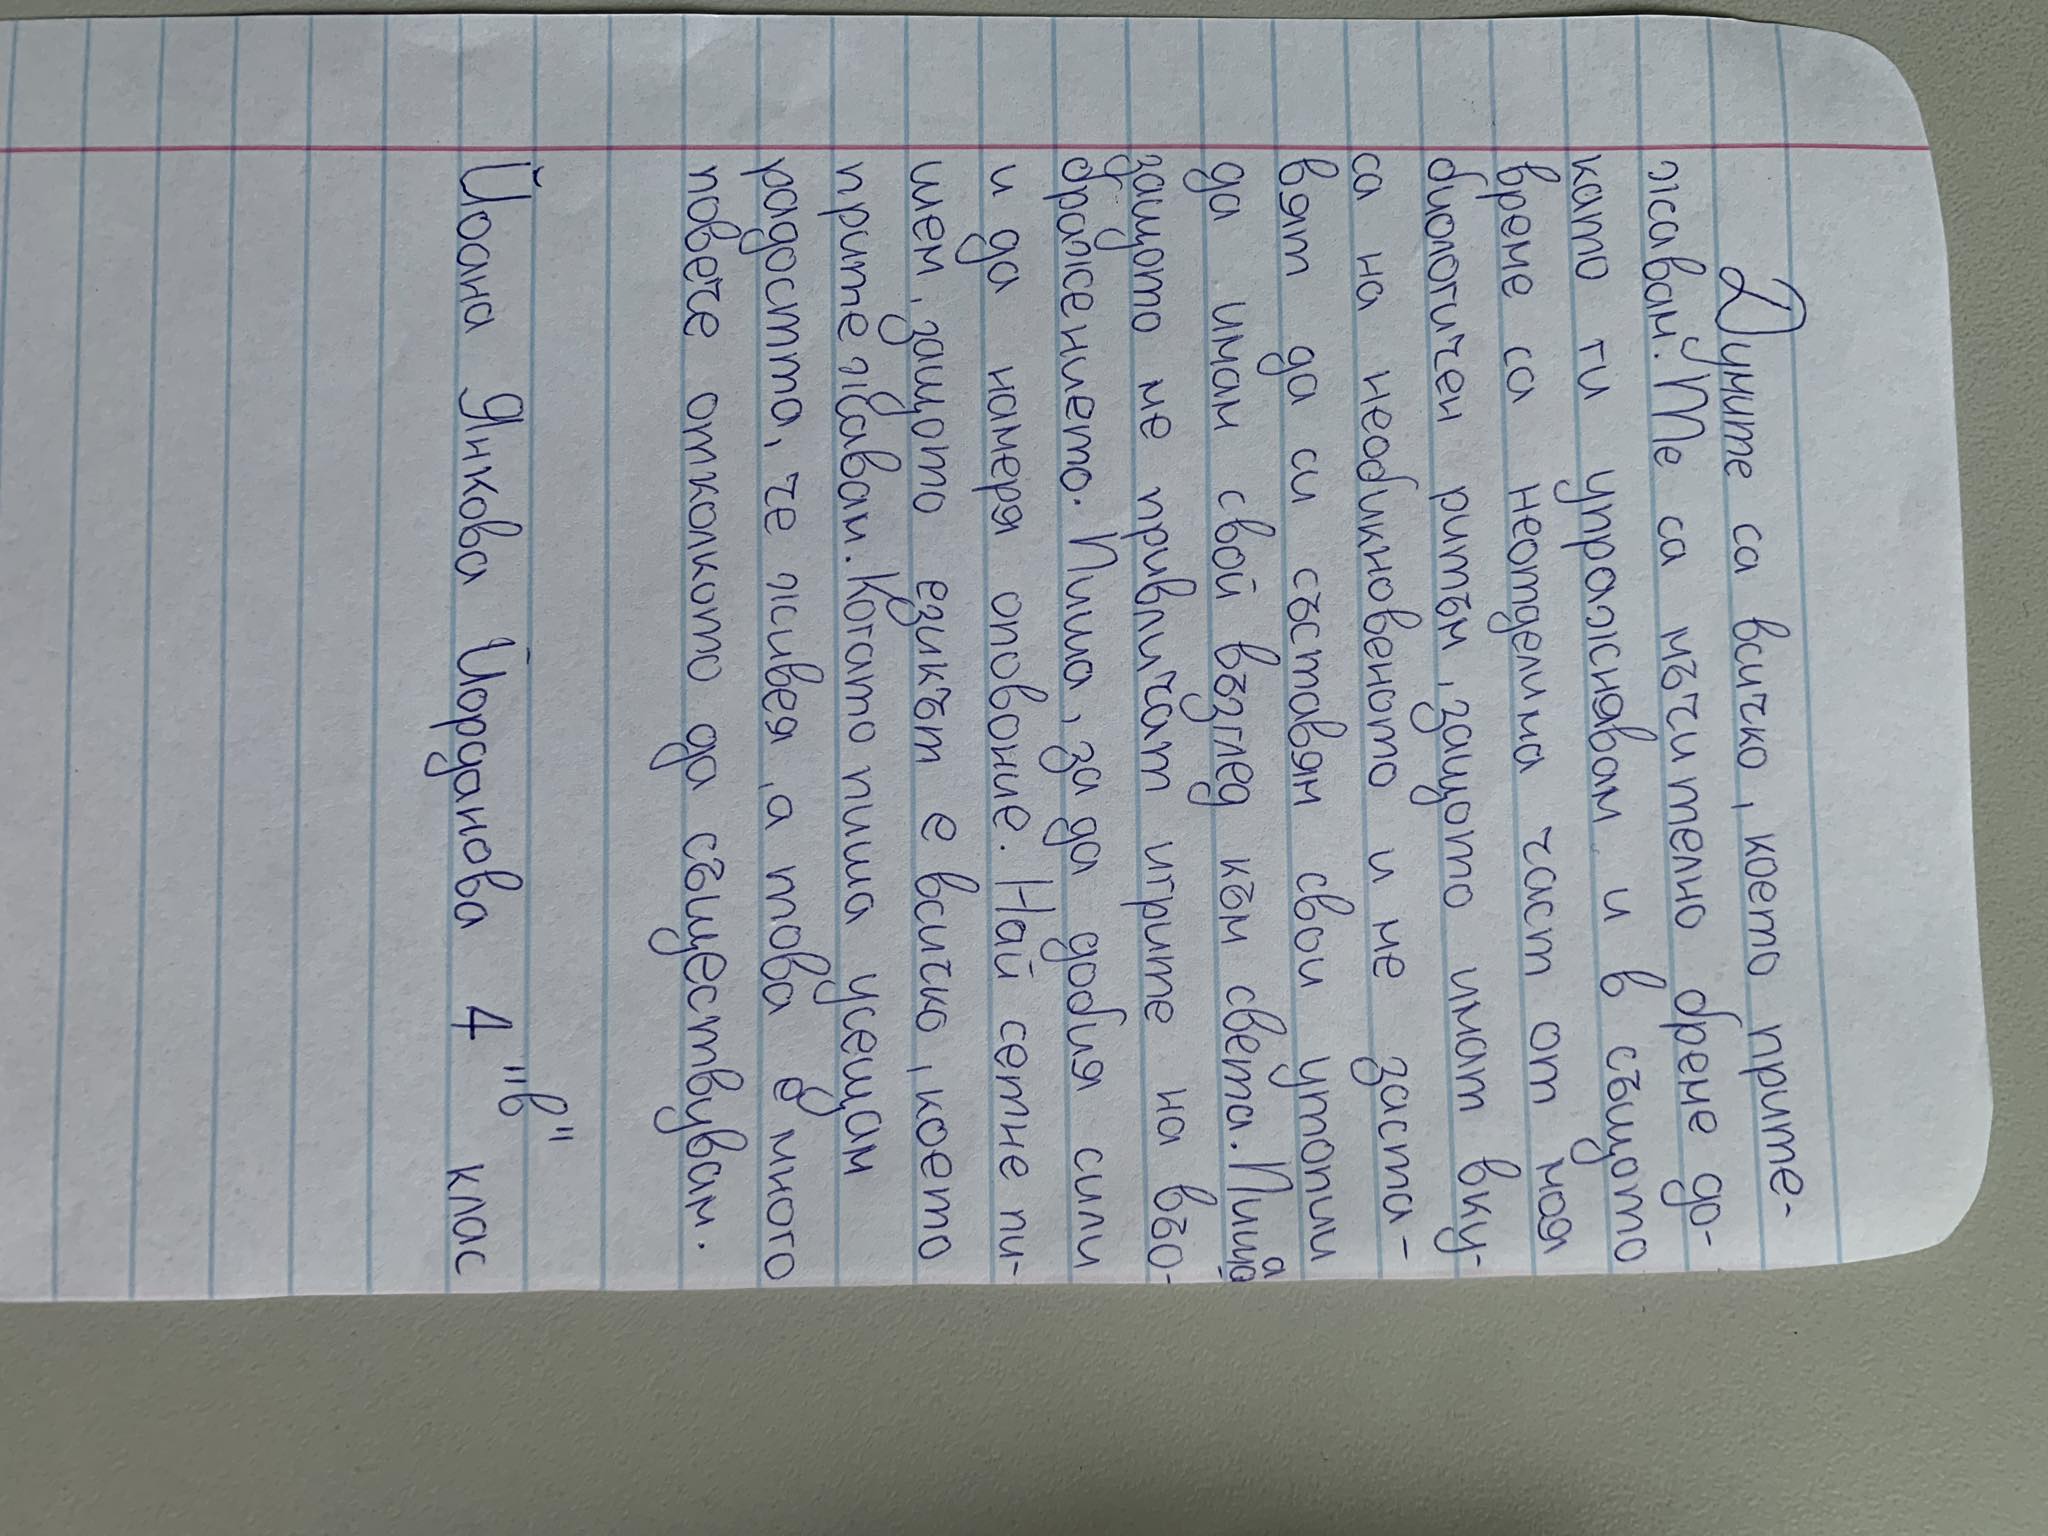 Думите са всичко, което прите-
жавам. Те са мъчително бреме до-
като ги упражнявам и в същото
време са неотделима част от моя
биологичен ритъм, защото имат вку-
са на необикновеното и ме заста-
вят да си съставям свои утопии
да имам свой възглед към света. Пиша
защото ме привличат игрите на въо-
бражението. Пиша, за да добия сили
и да намеря опование. Най сетне пи-
шем, защото езикът е всичко, което
притежавам. Когато пиша усещам
радостта, че живея, а това е много
повече отколкото да съществувам.
Йоана Янкова Йорданова 4 "в" клас